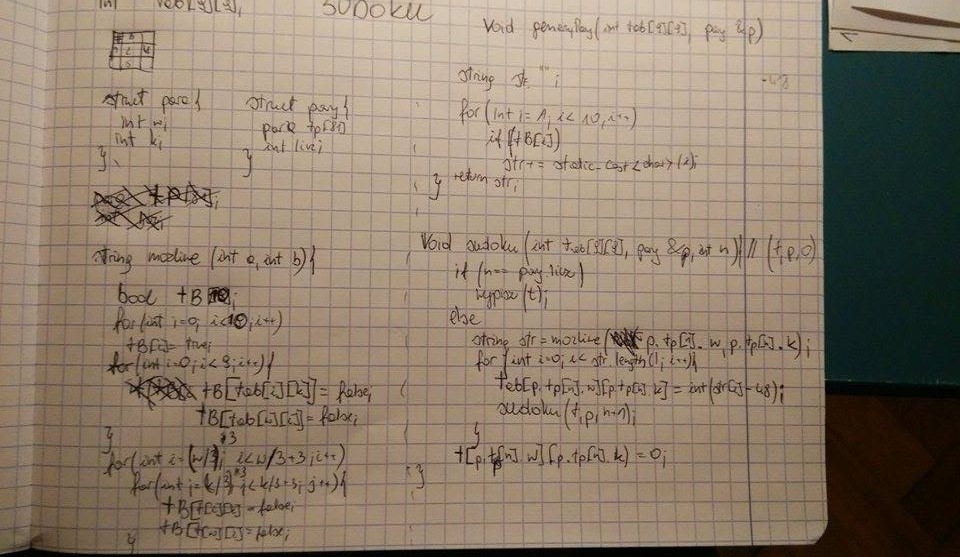 int tab[9][9];
SUDOKU
struct para{
int w;
int k;
};
struct pary{
para tp[81]
int licz;
}
string mozliwe (int a, int b){
bool tB[10];
for(int i=0; i<10; i++)
tB[i]= true;
for(int i=0; i<9; i++){
tB[tab[i][k]] = false;
tB[tab[w][i]] = false;
}
for(int i=(w/3)*3; i<w/3+3; i++)
for(int j=(k/3)*3; j<k/3+3; j++){
=false;
=false;
}
void (int tab[9][9], pary &p)
string str "" ;
-48
for(int i=1; i<10; i++)
if(tB[i])
str+= static_cast<char>(i);
return str;
}
Void sudoku(int tab[9][9], pary &p, int n){ // (t,p,0)
if (n== pary.licz)
wypisz(t);
else
string str=mozliwe( p.tp[n].w, p.tp[n].k);
for(int i=0; i<str.length(); i++){
tab[p.tp[n].w][p.tp[n].k] = int(str[i]-48);
sudoku(t,p,n+1);
}
t[p.tp[n].w][p.tp[n].k) = 0;
}